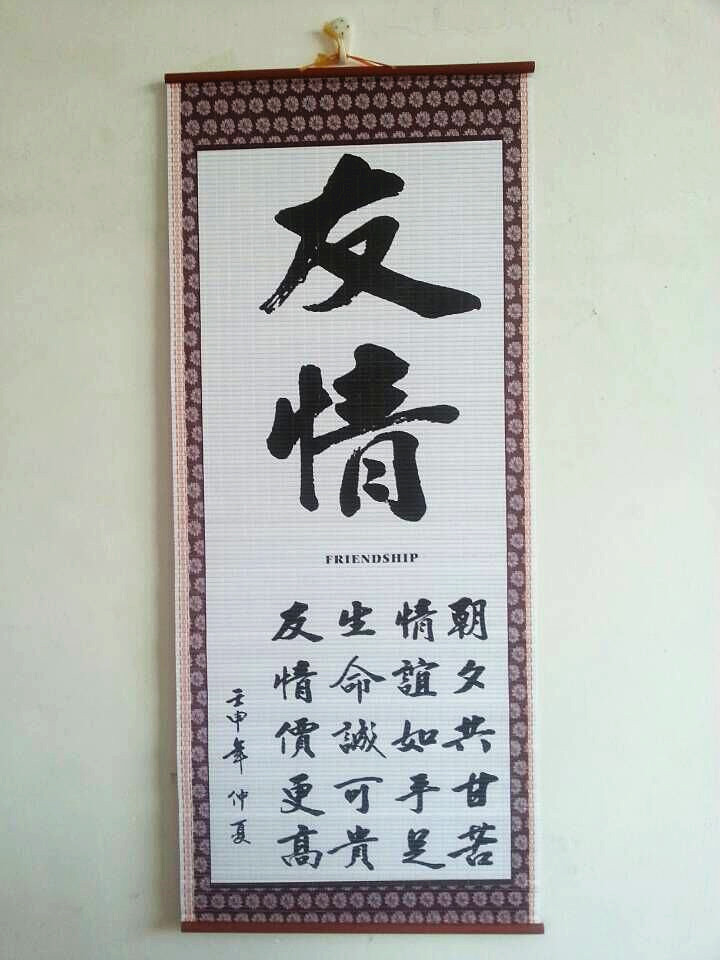 友情
FRIENDSHIP
朝夕共甘苦
情誼如手足
生命誠可貴
友情價更高
壬申年仲夏